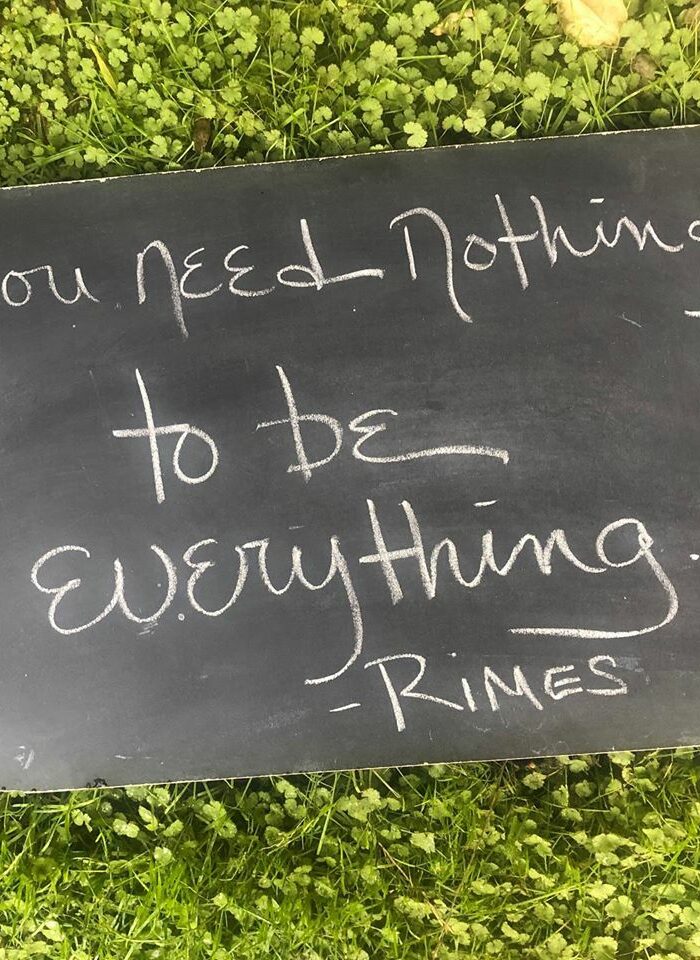 ou need Nothing
to be
Everything.
- RIMES